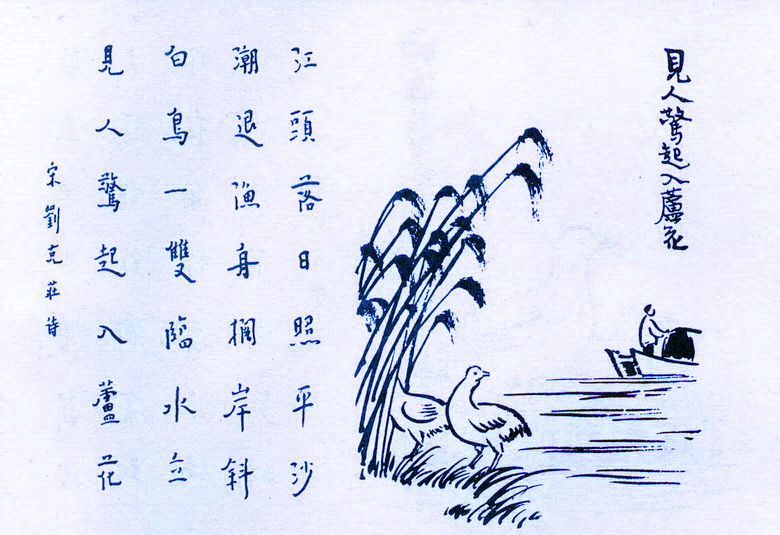 江頭落日照平沙
潮退漁舟擱岸斜
白鳥一雙臨水立
見人驚起入蘆花
宋劉克莊詩
見人驚起入蘆花